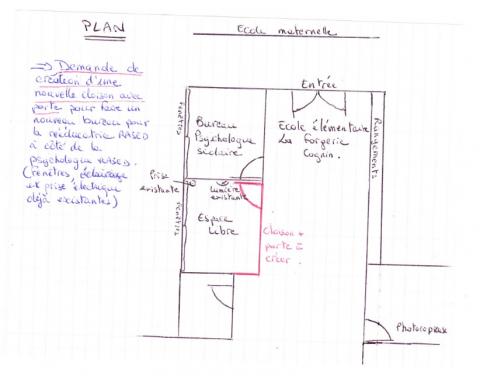 PLAN
Ecole maternelle
=> Demande de
création d'une
nouvelle cloison avec
porte pour faire un
nouveau bureau pour
la rééducatrice RASED
à côté de la
psychologue RASED.
(fenêtres, éclairage
et prise électrique
déjà existantes)
Entrée
fenêtres
Bureau
Psychologue
scolaire
Ecole élémentaire
La Forgerie
Cognin.
Rangements
Prise
existante
Lumière
existante
fenêtres
Espace
Libre
Cloison +
porte à
créer.
Photocopieuse